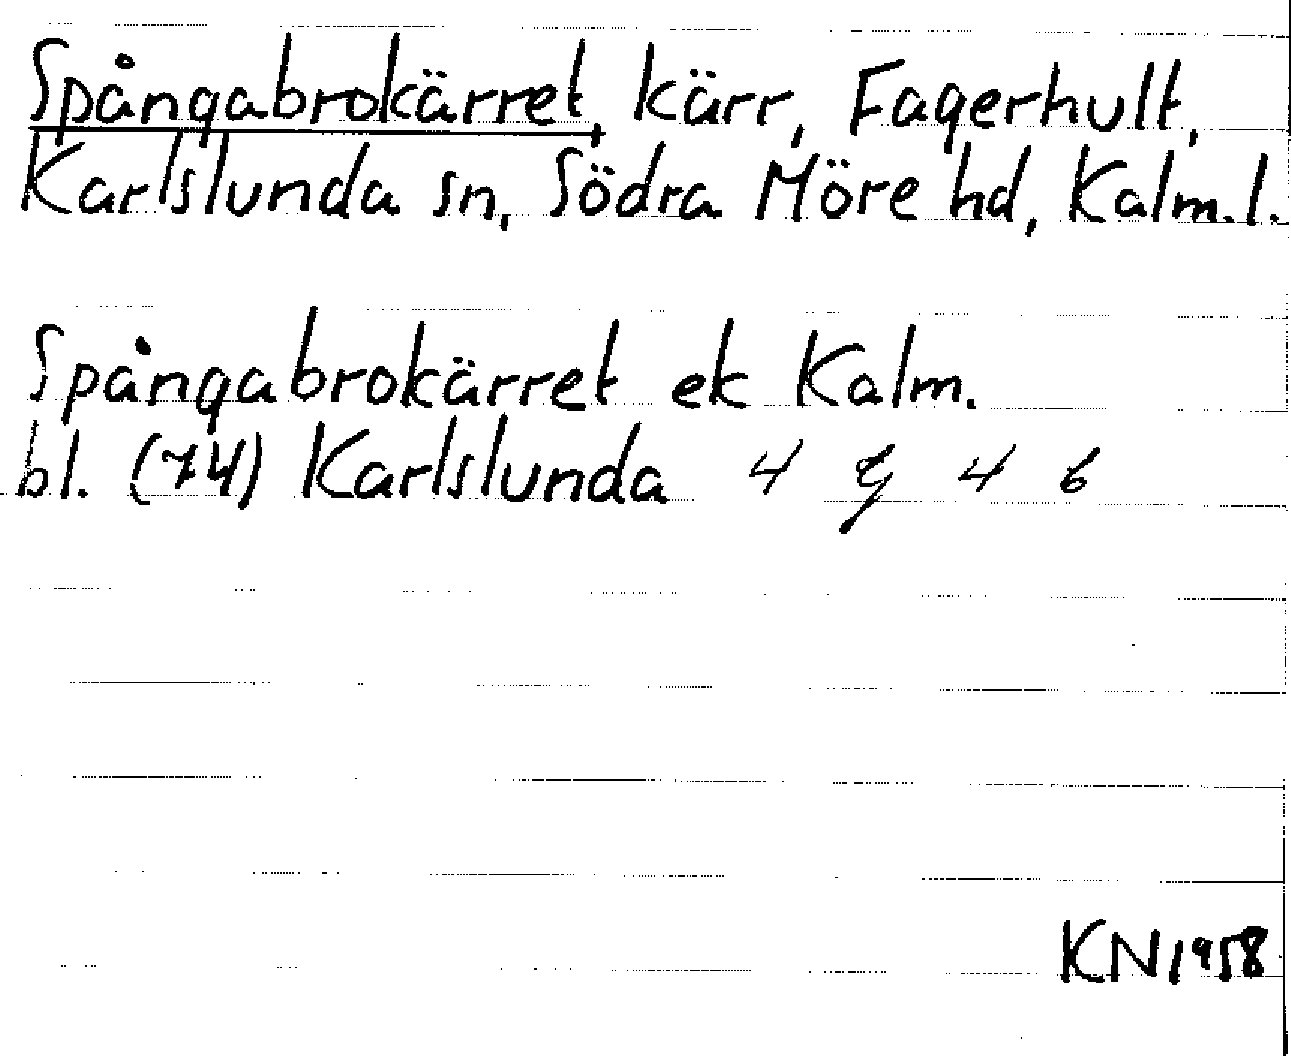 Spångabrokärret, kärr, Fagerhult,
Karlslunda sn, Södra Möre hd, Kalm.l.
Spångabrokärret ek Kalm.
bl. (74) Karlslunda 4 g 4 6
KN 1958